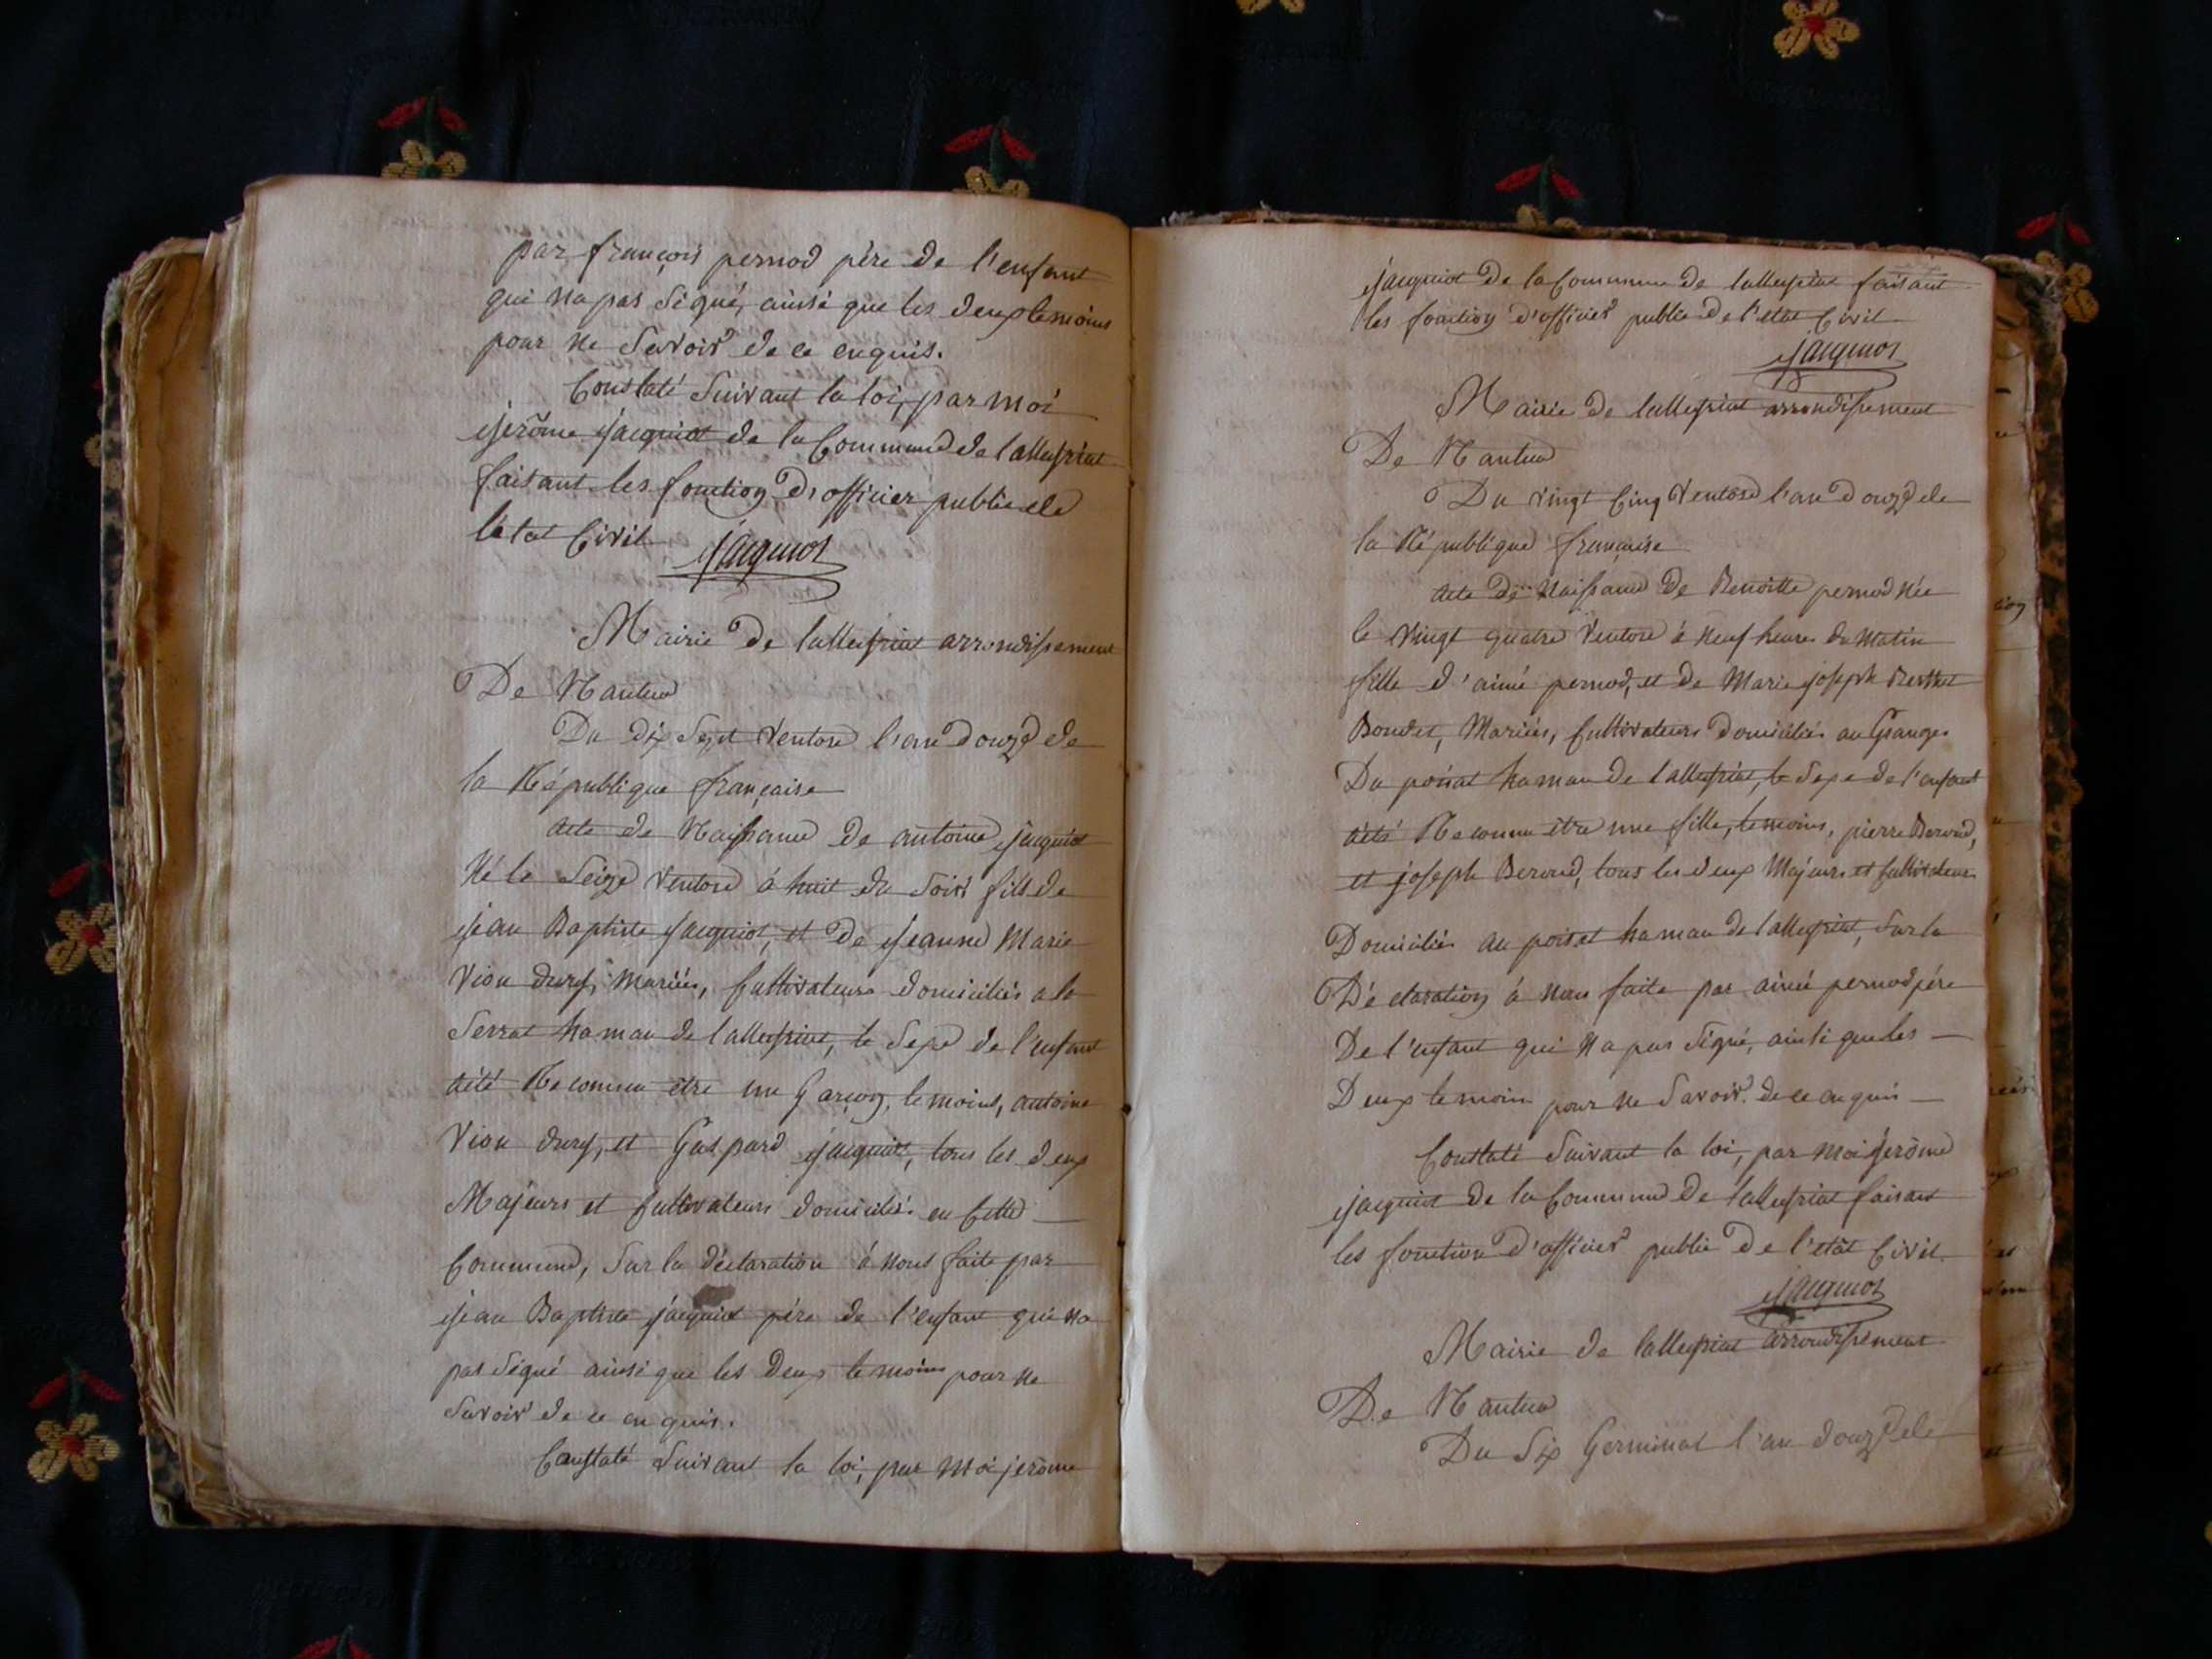 par françois pernod père de l'enfant
qui na pas Signé, ainsi que les deux temoins
pour ne Savoir de ce enquis.
Constaté Suivant la loi, par moi
jerôme jacquiot de la Commune de lalleyriat
faisant les fonction d'officier public de
létat Civil jacquiot
Mairie de lalleyriat arrondissement
De Nantua
Du dix Sept Ventose l'an douze de
la République française
acte de Naissance de antoine jacquiot
Né le Seize Ventose à huit du Soir fils de
jean Baptiste jacquiot, et de jeanne Marie
Vion dury, mariées, Cultivateurs domiciliés a la
Serrat hamau de lalleyriat, le Sexe de l'enfant
aété Reconnu être un Garçon, temoins, antoine
Vion dury, et Gaspard jacquiot, tous les deux
Majeurs et Cultivateurs domiciliés en Cette
Commune, Sur la déclaration à nous faite par
jean Baptiste jacquiot père de l'enfant qui na
pas Signé ainsi que les deux temoins pour ne
Savoir de ce enquis.
Constaté Suivant la loi, par moi jerôme
jacquiot de la Commune de lalleyriat faisant
les fonction d'officier public de l'etat Civil
jacquiot
Mairie de lalleyriat arrondissement
De Nantua
Du vingt Cinq Ventose l'an douze de
la République française
acte de Naissance de Benoitte pernod Née
le Vingt quatre Ventose à Neuf heures du Matin
fille d'aimé pernod, et de Marie joseph Berthet
Bondet, Mariées, Cultivateurs domiciliés au Granges
Du poisat hamau de lalleyriat, le Sexe de l'enfant
aété Reconnu être une fille, temoins, pierre Beroud,
et joseph Beroud, tous les deux Majeurs et Cultivateurs
Domiciliés au poisat hamau de lalleyriat, Sur la
Déclaration à nous faite par aimé pernod père
De l'enfant qui Na pas Signé, ainsi que les
Deux temoin pour ne Savoir de ce enquis
Constaté Suivant la loi, par moi jerôme
jacquiot de la Commune De lalleyriat faisant
les fonction d'officier public De l'etât Civil
jacquiot
Mairie de lalleyriat arrondissement
De Nantua
Du Six Germinal l'an douze de